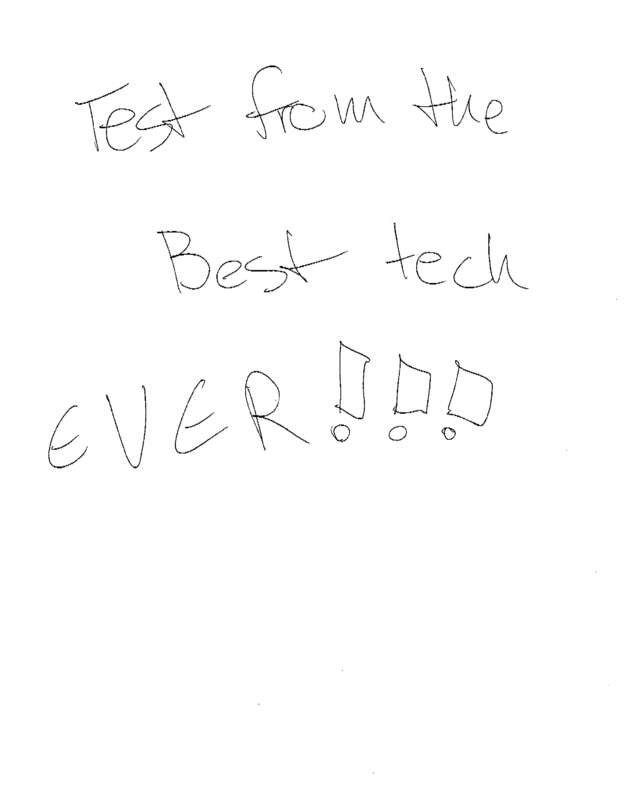 Test from the
Best tech
EVER!!!